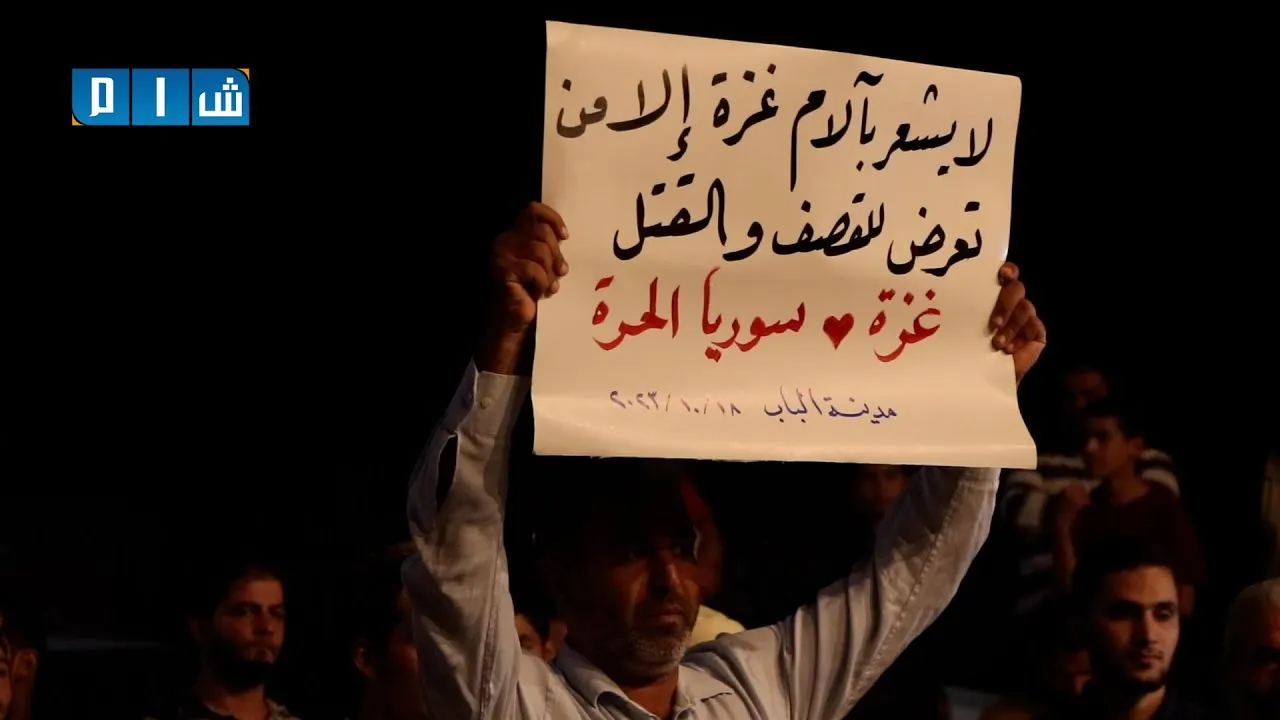 شام
لا يشعر بآلام غزة إلا من
تعرض للقصف والقتل
غزة ♥ سوريا الحرة
مدينة الباب ٢٠٢٣/١٠/١٨